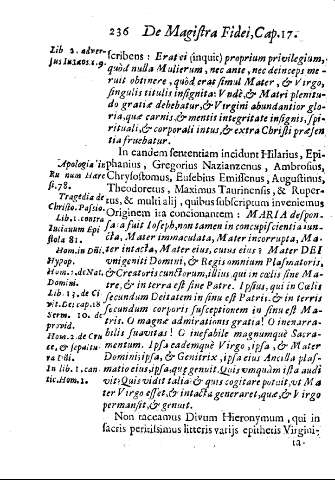 236 De Magistra Fidei, Cap. 17.
Lib 2. adver-
sus Iulos.1.9.
scribens: Erat ei (inquit) proprium privilegium,
quòd nulla Mulierum, nec ante, nec deinceps me-
ruit obtinere, quòd erat simul Mater, & Virgo,
singulis titulis insignita: Vndè, & Matri plenitu-
do gratiæ debebatur, & Virgini abundantior glo-
ria, quæ carnis, & mentis integritate insignis, spi-
rituali, & corporali intus, & extra Christi præsen
tia fruebatur.
In eandem sententiam incidunt Hilarius, Epi-
Apologia in
Ru num Hære
si.78.
Tragœdia de
Christo. Passio.
Lib. 1. contra
Epi
stola 81.
Hom. in Dili.
Hypop.
Hom. de Nat.
Domini.
Lib. 13. de Ci
vit. Dei cap. 18
Serm. 10. de
provid.
Hom. 2. de Cru
ce, & sepultu-
ra Dili.
In lib. 1. can
tic. Hom. 1.
phanius, Gregorius Nazianzenus, Ambrosius,
Chrysostomus, Eusebius Emissenus, Augustinus,
Theodoretus, Maximus Taurinensis, & Ruper-
tus, & multi alij, quibus subscriptum invenimus
Originem ita concionantem: MARIA despon-
sata fuit Ioseph, non tamen in concupiscentia iun-
cta, Mater immaculata, Mater incorrupta, Ma-
ter intacta, Mater eius, cuius eius? Mater DEI
unigeniti Domini, & Regis omnium Plasmatoris,
& Creatoris cunctorum, illius qui in cælis sine Ma-
tre, & in terra est sine Patre. Ipsius, qui in Cælis
secundum Deitatem in sinu est Patris. & in terris
secundum corporis susceptionem in sinu est Ma-
tris. O magnæ admirationis gratia! O inenarra-
bilis suavitas! O ineffabile magnumque Sacra-
mentum. Ipsa eademque Virgo, ipsa, & Mater
Domini; ipsa, & Genitrix, ipsa eius Ancilla plas-
matio eius, ipsa, quæ genuit. Quis umquam ista audi
vit? Quis vidit talia? & quis cogitare potuit, vt Ma
ter Virgo esset, & intacta generaret, quæ, & Virgo
permansit, & genuit.
Non taceamus Divum Hieronymum, qui in
sacris peritissimus litteris varijs epithetis Virgini-
ta-